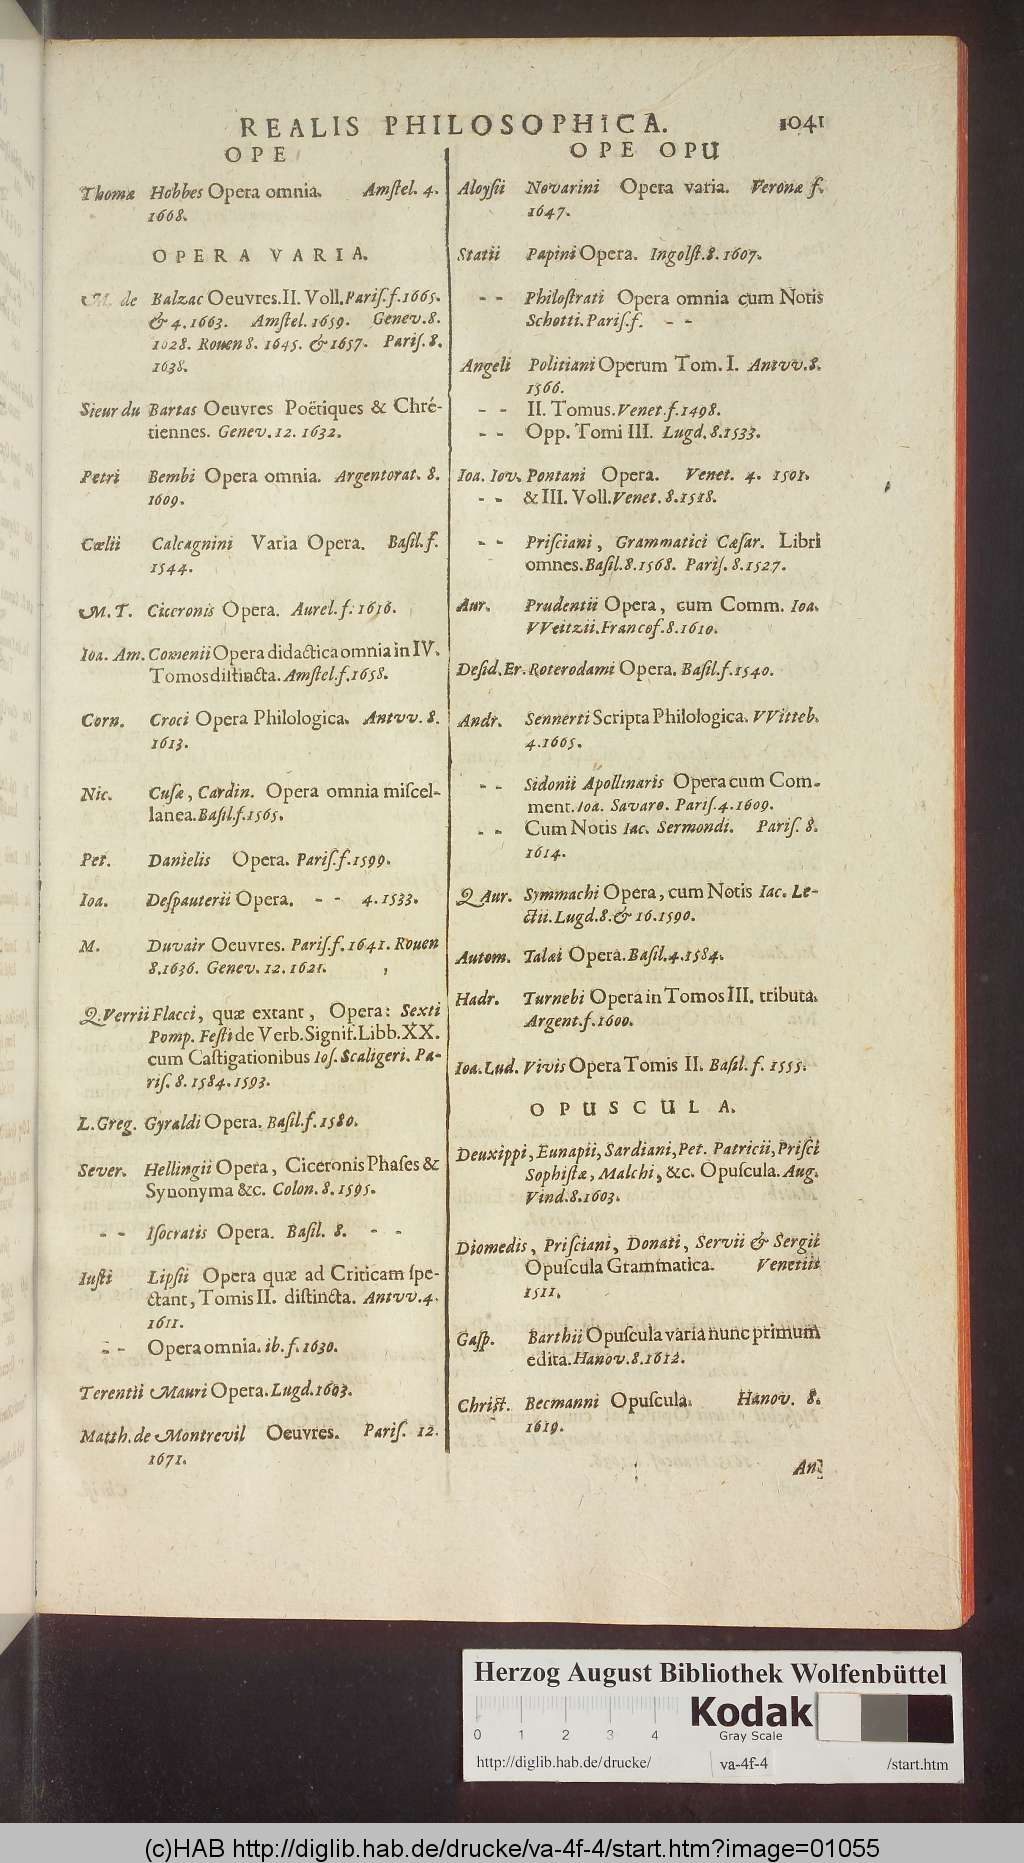 REALIS PHILOSOPHICA. 1041
OPE
Thomæ Hobbes Opera omnia. Amſtel. 4.
1668.
OPERA VARIA.
M. de Balzac Oeuvres. II. Voll. Pariſ. f. 1665.
& 4. 1663. Amſtel. 1659. Genev. 8.
1028. Rouen 8. 1645. & 1657. Pariſ. 8.
1638.
Sieur du Bartas Oeuvres Poëtiques & Chré-
tiennes. Genev. 12. 1632.
Petri Bembi Opera omnia. Argentorat. 8.
1609.
Cœlii Calcagnini Varia Opera. Baſil. f.
1544.
M. T. Ciceronis Opera. Aurel. f. 1616.
Ioa. Am. Comenii Opera didactica omnia in IV.
Tomos diſtincta. Amſtel. f. 1658.
Corn. Croci Opera Philologica. Antvv. 8.
1613.
Nic. Cuſæ, Cardin. Opera omnia miſcel-
lanea. Baſil. f. 1565.
Pet. Danielis Opera. Pariſ. f. 1599.
Ioa. Deſpauterii Opera. - - 4. 1533.
M. Duvair Oeuvres. Pariſ. f. 1641. Rouen
8. 1636. Genev. 12. 1621.
Q. Verrii Flacci, quæ extant, Opera: Sexti
Pomp. Feſti de Verb. Signif. Libb. XX.
cum Caſtigationibus Ioſ. Scaligeri. Pa-
riſ. 8. 1584. 1593.
L. Greg. Gyraldi Opera. Baſil. f. 1580.
Sever. Hellingii Opera, Ciceronis Phaſes &
Synonyma &c. Colon. 8. 1595.
- - Iſocratis Opera. Baſil. 8. - -
Iuſti Lipſii Opera quæ ad Criticam ſpe-
ctant, Tomis II. diſtincta. Antvv. 4.
1611.
- - Opera omnia. ib. f. 1630.
Terentii Mauri Opera. Lugd. 1603.
Matth. de Montrevil Oeuvres. Pariſ. 12.
1671.
OPE OPU
Aloyſii Novarini Opera varia. Veronæ f.
1647.
Statii Papini Opera. Ingolſt. 8. 1607.
- - Philoſtrati Opera omnia cum Notis
Schotti. Pariſ. f. - -
Angeli Politiani Operum Tom. I. Antvv. 8.
1566.
- - II. Tomus. Venet. f. 1498.
- - Opp. Tomi III. Lugd. 8. 1533.
Ioa. Iov. Pontani Opera. Venet. 4. 1501.
- - & III. Voll. Venet. 8. 1518.
- - Priſciani, Grammatici Cæſar. Libri
omnes. Baſil. 8. 1568. Pariſ. 8. 1527.
Aur. Prudentii Opera, cum Comm. Ioa.
VVeitzii. Francof. 8. 1610.
Deſid. Er. Roterodami Opera. Baſil. f. 1540.
Andr. Sennerti Scripta Philologica. VVitteb.
4. 1605.
- - Sidonii Apollinaris Opera cum Com-
ment. Ioa. Savaro. Pariſ. 4. 1609.
- - Cum Notis Iac. Sermondi. Pariſ. 8.
1614.
Q. Aur. Symmachi Opera, cum Notis Iac. Le-
ctii. Lugd. 8. & 16. 1590.
Autom. Talæi Opera. Baſil. 4. 1584.
Hadr. Turnebi Opera in Tomos III. tributa.
Argent. f. 1600.
Ioa. Lud. Vivis Opera Tomis II. Baſil. f. 1555.
OPUSCULA.
Deuxippi, Eunapii, Sardiani, Pet. Patricii, Priſci
Sophiſtæ, Malchi, &c. Opuſcula. Aug.
Vind. 8. 1603.
Diomedis, Priſciani, Donati, Servii & Sergii
Opuſcula Grammatica. Venetiis
1511.
Gaſp. Barthii Opuſcula varia nunc primum
edita. Hanov. 8. 1612.
Chriſt. Becmanni Opuſcula. Hanov. 8.
1619.
An-
Herzog August Bibliothek Wolfenbüttel
0 1 2 3 4
Kodak
Gray Scale
http://diglib.hab.de/drucke/ va-4f-4 /start.htm
(c)HAB http://diglib.hab.de/drucke/va-4f-4/start.htm?image=01055